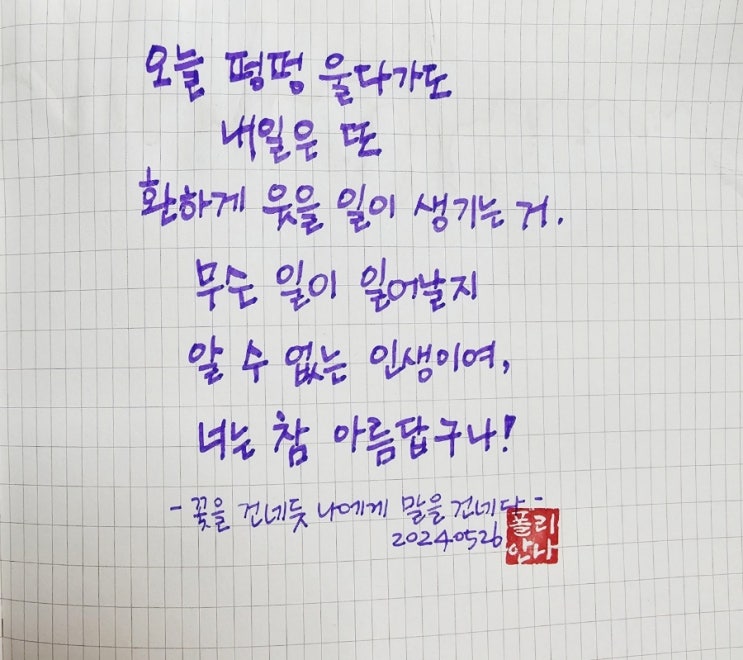 오늘 펑펑 울다가도
내일은 또
환하게 웃을 일이 생기는 거.
무슨 일이 일어날지
알 수 없는 인생이여,
너는 참 아름답구나!
- 꽃을 건네듯 나에게 말을 건네다 -
20240526
폴리
안나